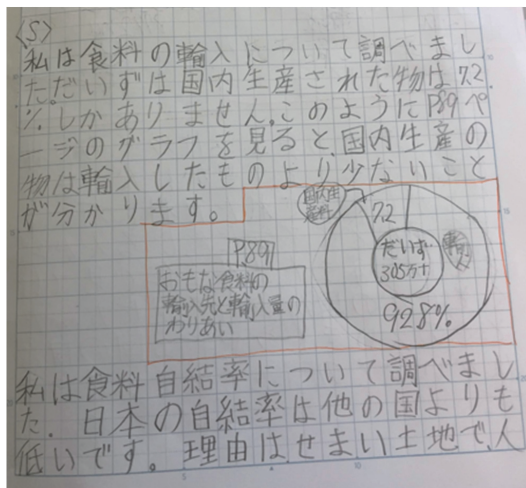 〈S〉
私は食料の輸入について調べまし
た。だいずは国内生産された物は7.2
%しかありません。このようにP89ペ
ージのグラフを見ると、国内生産の
物は輸入したものより少ないこと
が分かります。
国内生産
7.2
P89
だいず
305万t
輸入
おもな食料の
輸入先と輸入量の
わりあい
92.8%
私は食料自結率について調べまし
た。日本の自結率は他の国よりも
低いです。理由は、せまい土地で、人